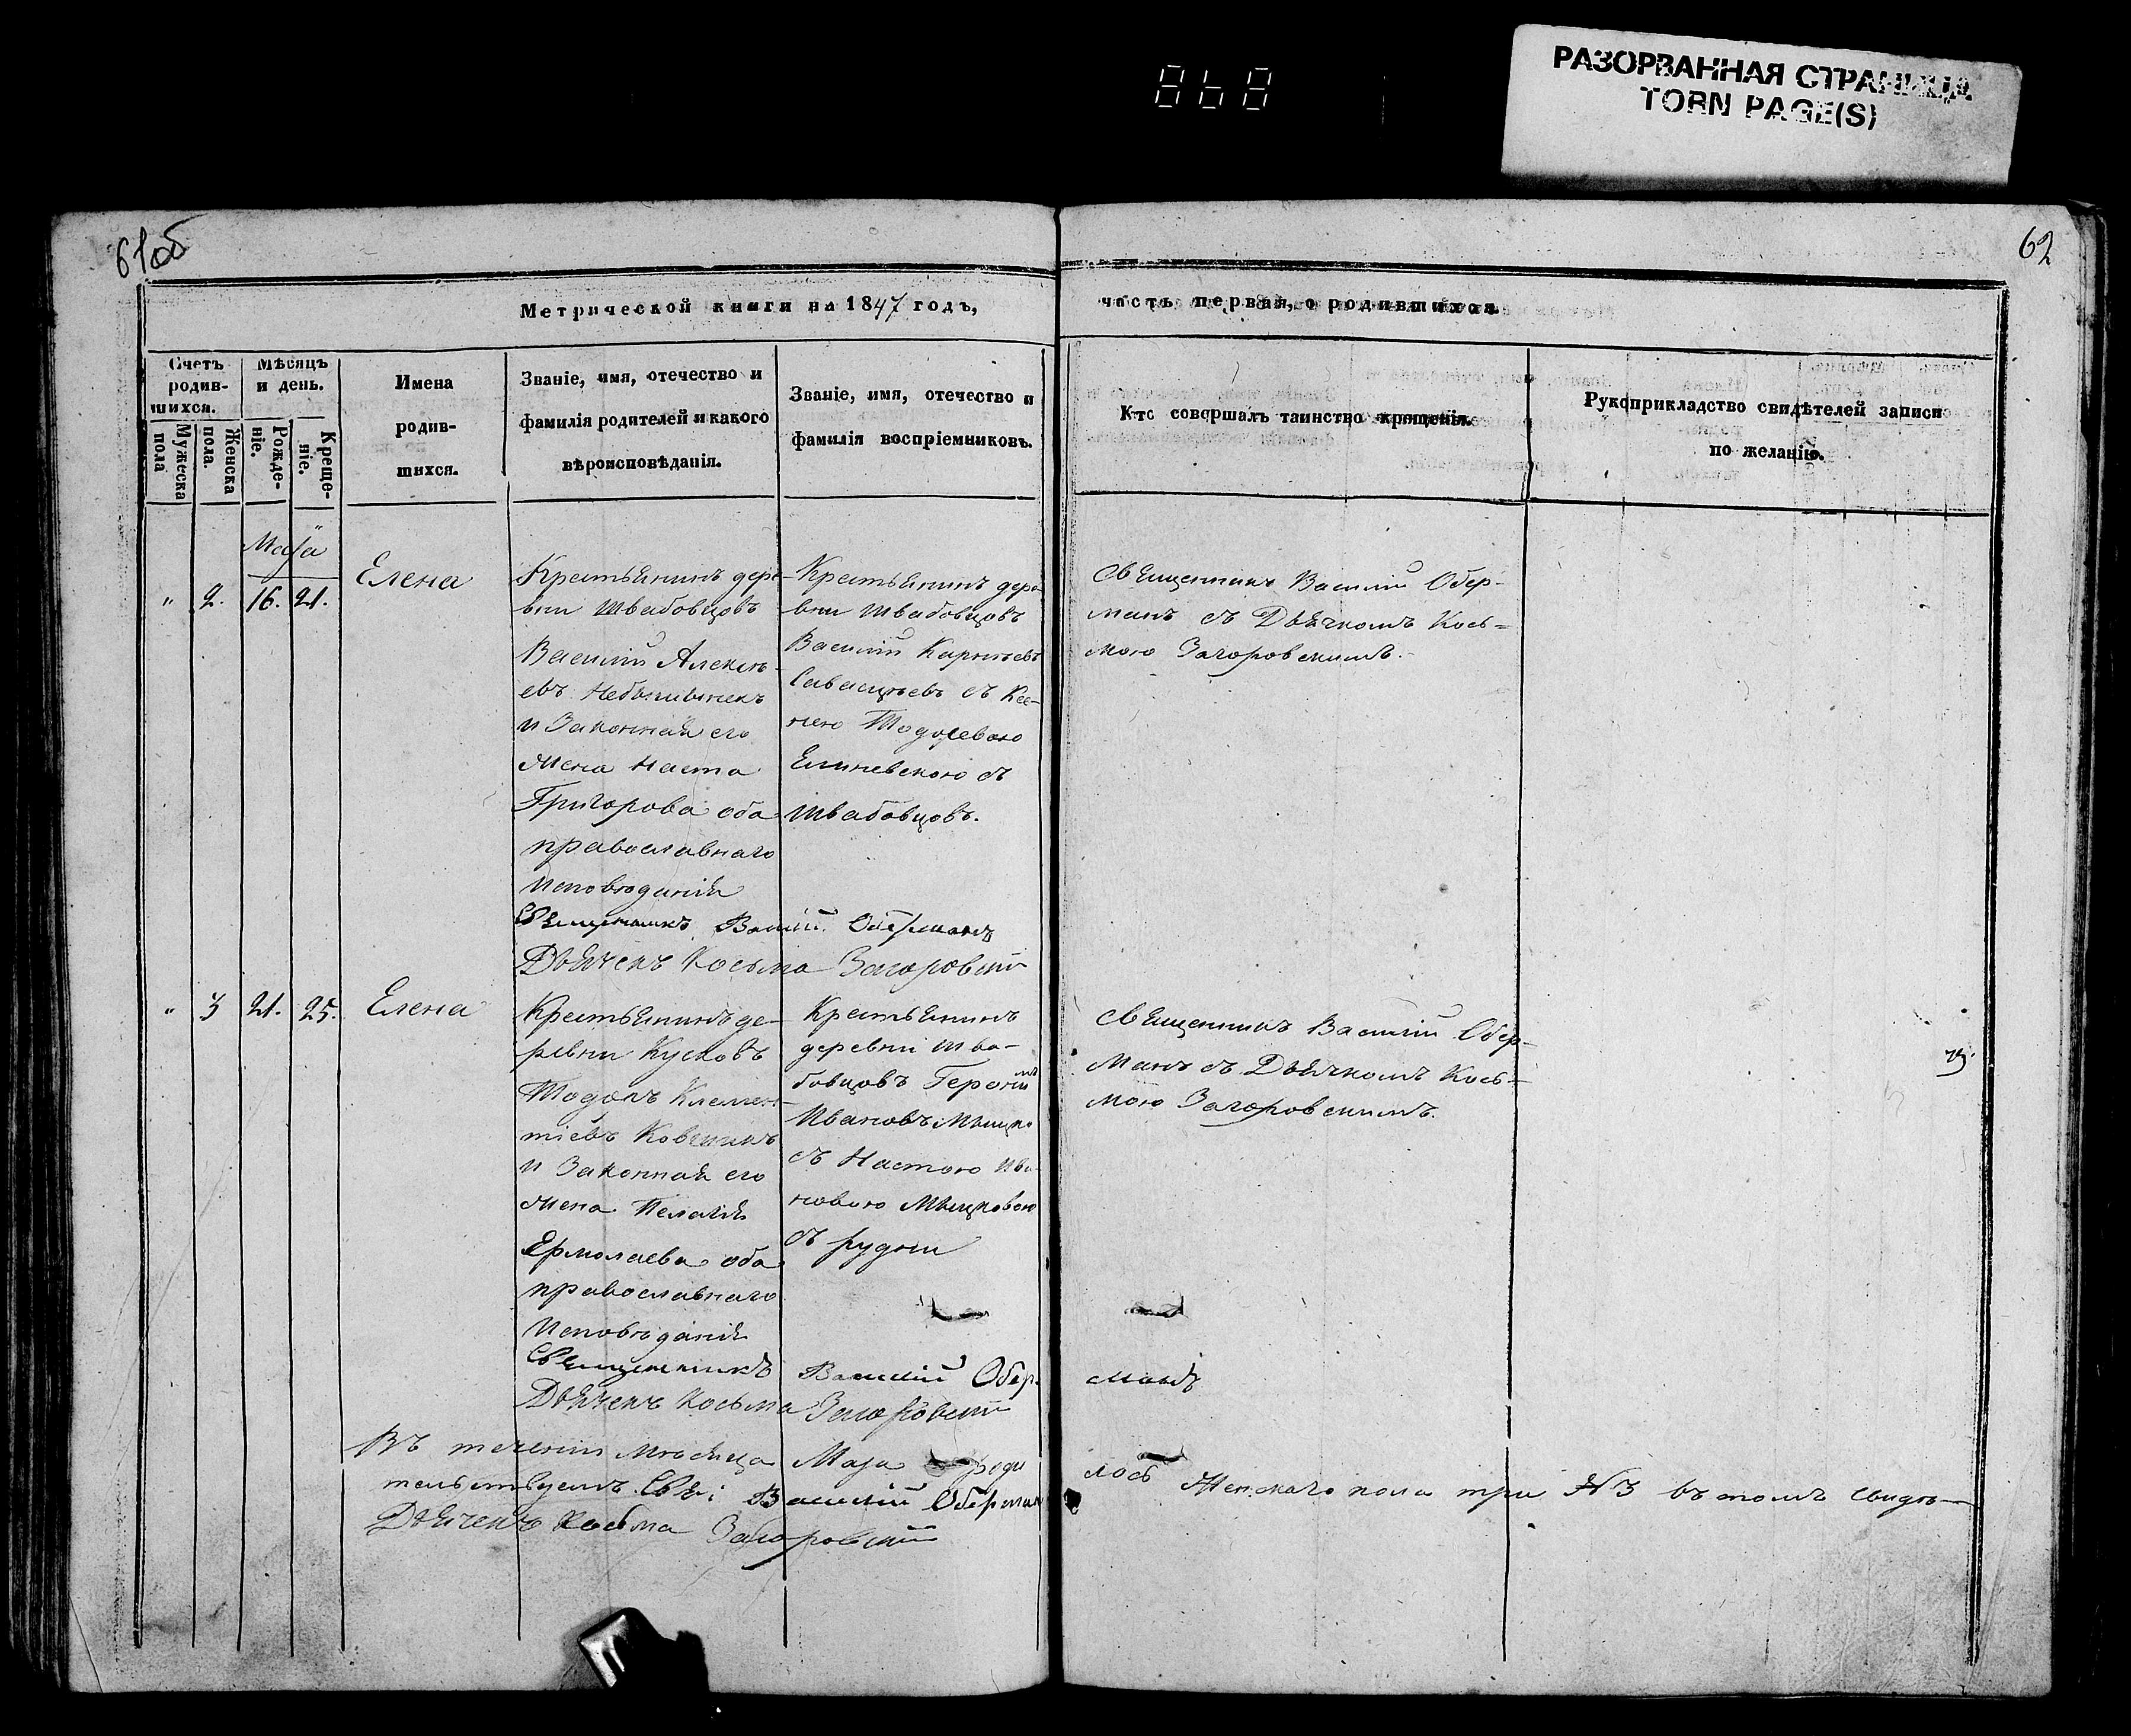 868
РАЗОРВАННАЯ СТРАНИЦА
TORN PAGE(S)
61об
62
Метрической книги на 1847 годъ,
часть первая, о родившихся.
Счетъ родив-шихся.
Мужеска пола
Женска пола.
Мѣсяцъ и день.
Рожде-ніе.
Креще-ніе.
Имена
родив-
шихся.
Званіе, имя, отечество и
фамилія родителей и какого
вѣроисповѣданія.
Званіе, имя, отечество и
фамилія воспріемниковъ.
Кто совершалъ таинство крещенія.
Рукоприкладство свидѣтелей записи
по желанію.
Маja
" 2. 16. 21.
Елена
Крестьянинъ дере-
вни Швабовцовъ
Василій Алексѣ-
евъ
и Законная его
жена Наста
Григорова оба
православнаго
исповѣданія
Крестьянинъ дере-
вни Швабовцовъ
Василій
съ Ксе-
нею
съ
Швабовцовъ.
Священникъ Василій Обер-
манъ съ Дьячкомъ Кось=
мою Загоровскимъ.
Священникъ Василій Оберманъ
Дьячекъ Косьма Загоровскій
" 3 21. 25.
Елена
Крестьянинъ де-
ревни Кусковъ
Тодоръ Клемен-
тіевъ
и Законная его
жена Пелагія
Ермолаева оба
православнаго
исповѣданія
Крестьянинъ
деревни Шва-
бовцовъ
Ивановъ Мыцко
съ Настою Ива-
новою Мыцковою
съ рудни
Священникъ Василій Обер-
манъ съ Дьячкомъ Кось=
мою Загоровскимъ.
Священникъ Василій Обер-
манъ
Дьячекъ Косьма Загоровскій
Въ теченіи мѣсяца Маja роди
лось Женскаго пола три №3 въ томъ свидѣ-
тельствуемъ Свя: Василій Оберманъ
Дьячекъ Косьма Загоровскій